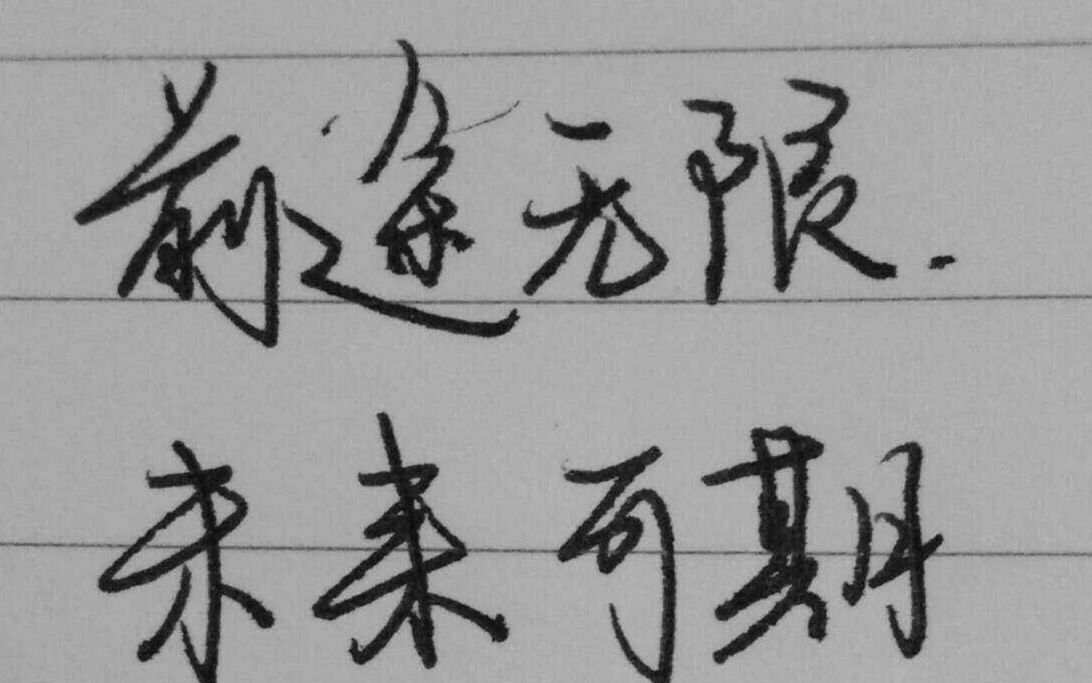 前途无限.
未来可期